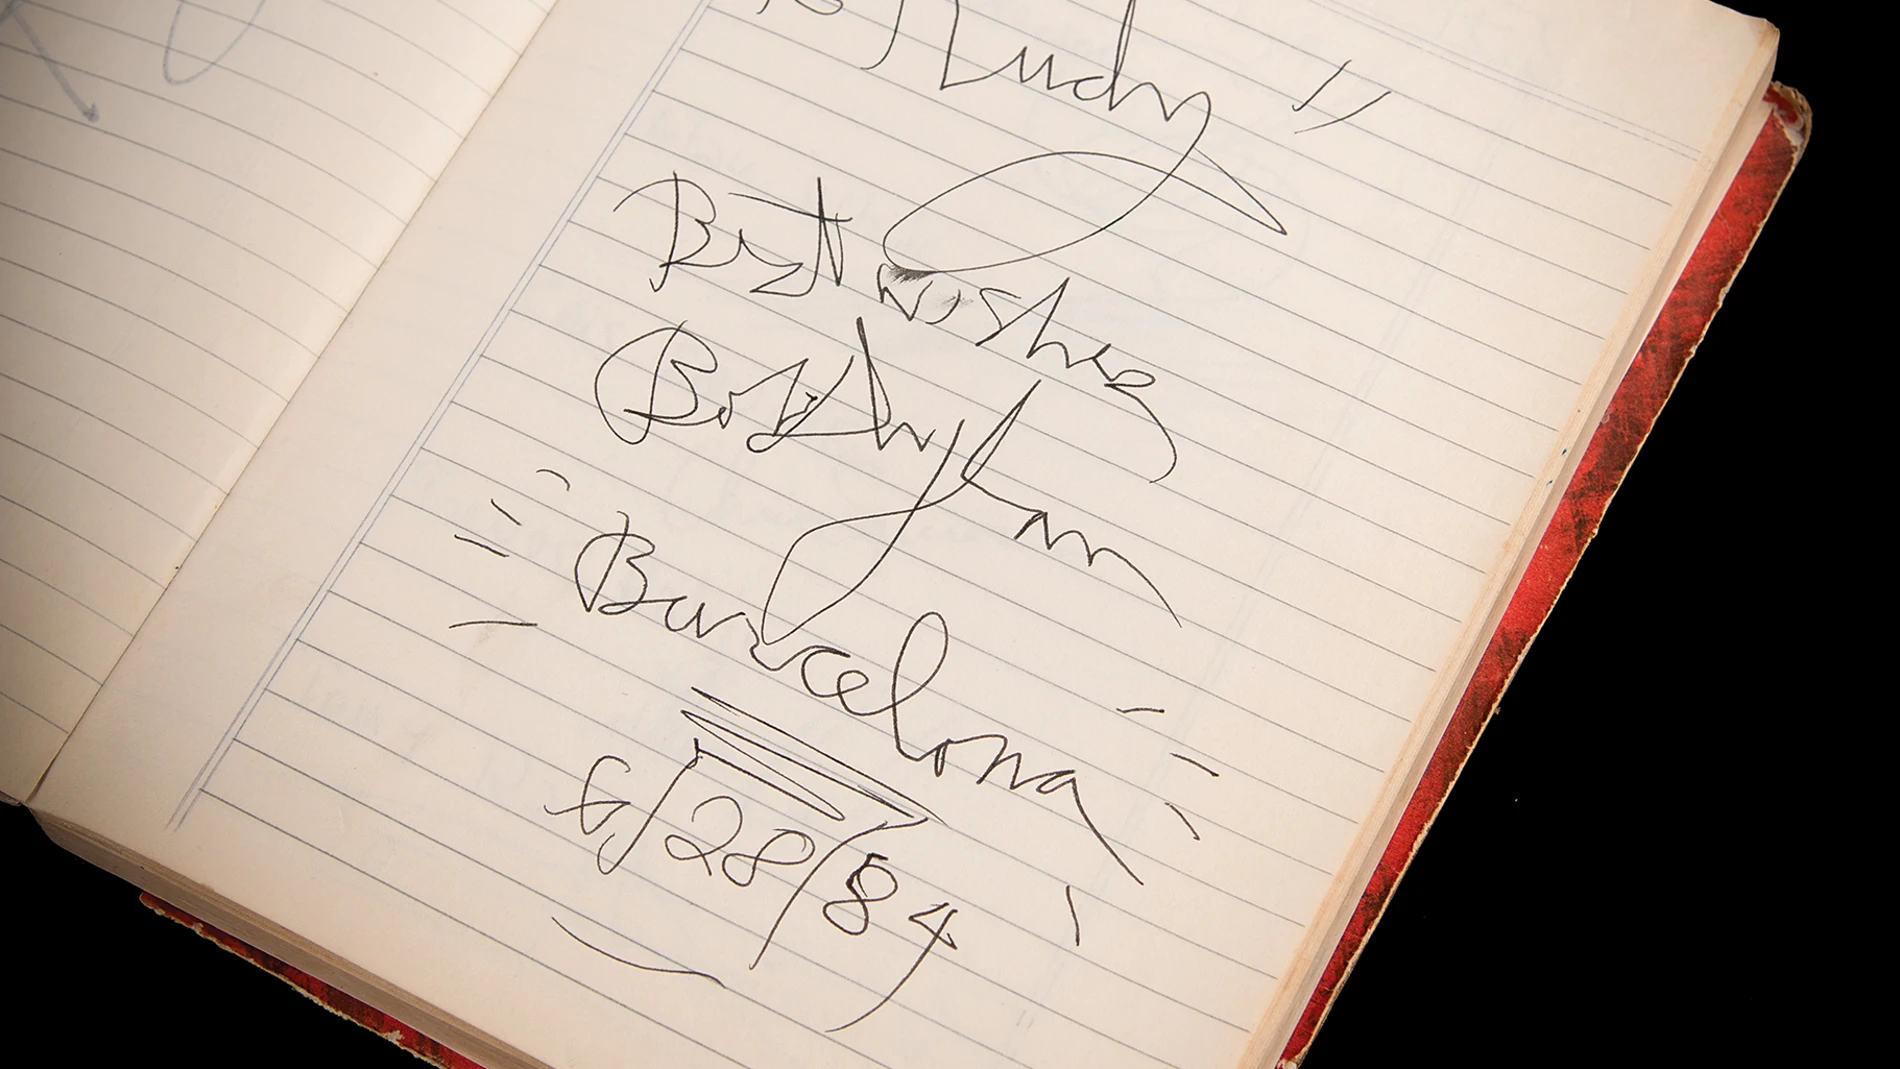 to Rudy
Best wishes
Bob Dylan
Barcelona
6/28/84